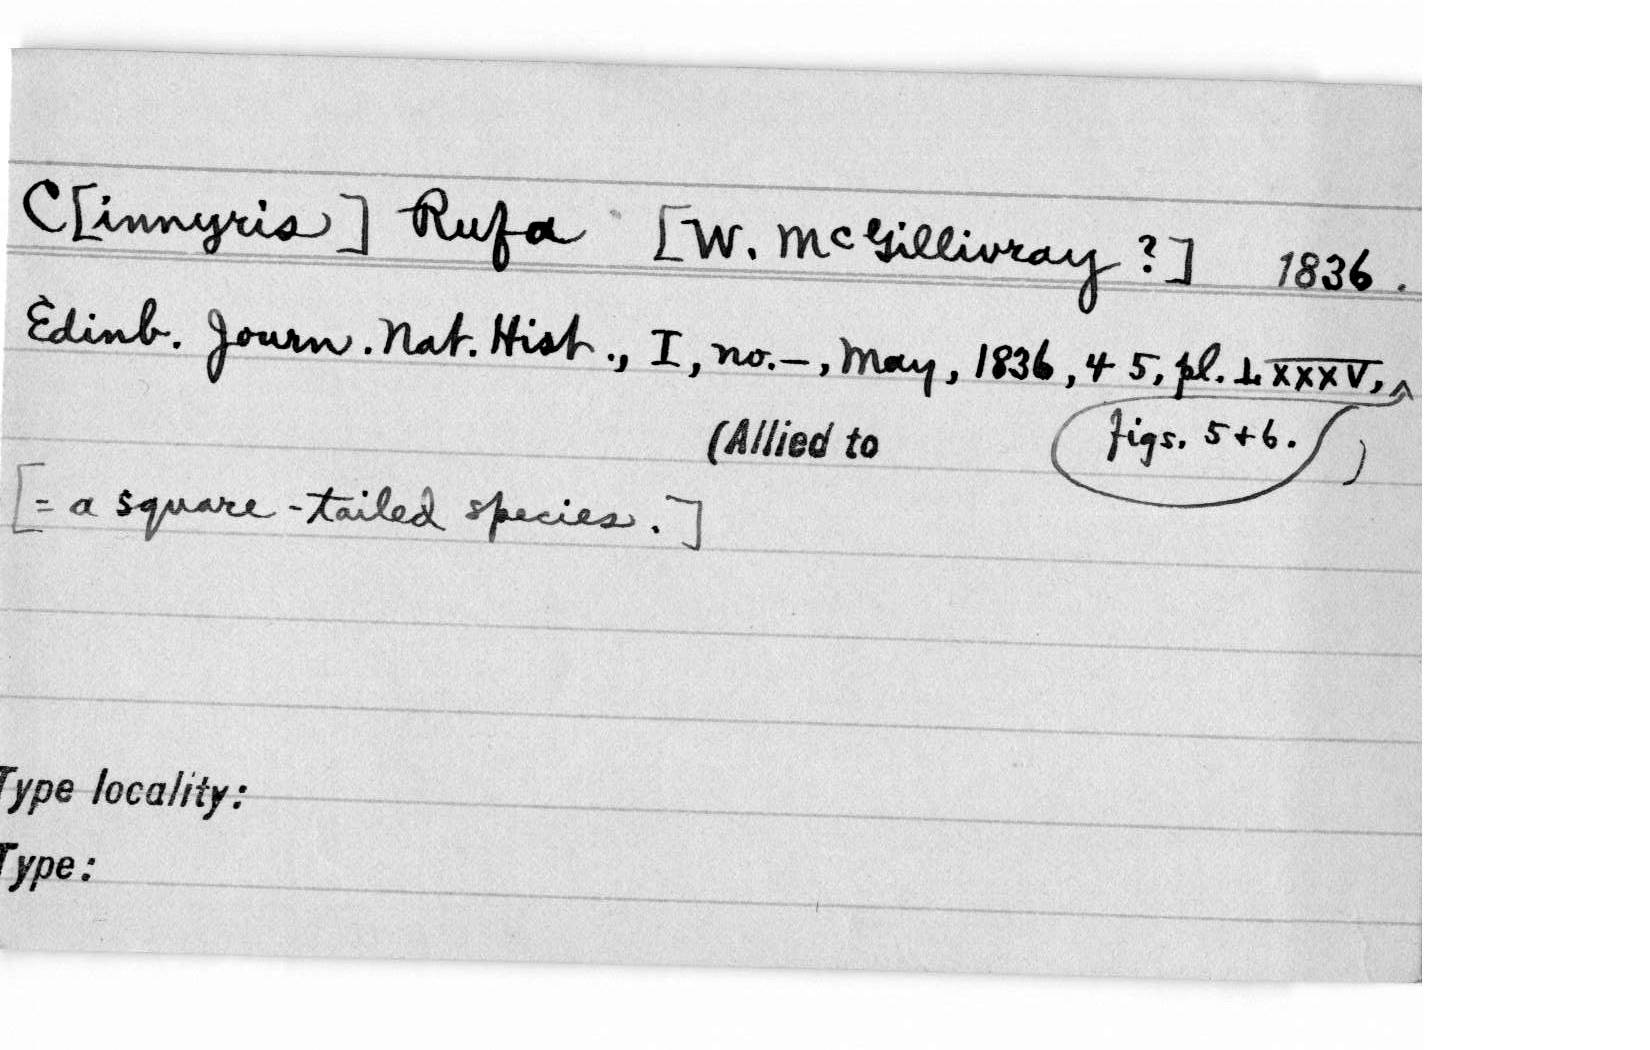 C[innyris] Rufa [W. McGillivray ?] 1836.
Edinb. Journ. Nat. Hist., I, no.–, May, 1836, 45, pl. LXXXV, ^
(Allied to figs. 5+6. )
[= a square-tailed species.]
Type locality:
Type: